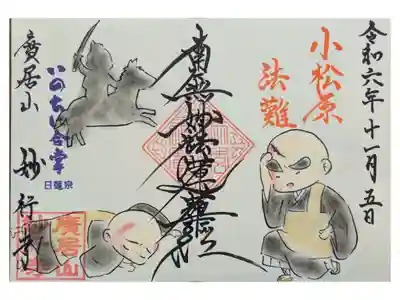 令和六年十一月五日
小松原
法難
南無妙法蓮華経
いのちに合掌
日蓮宗
廣居山 妙行寺
廣居山